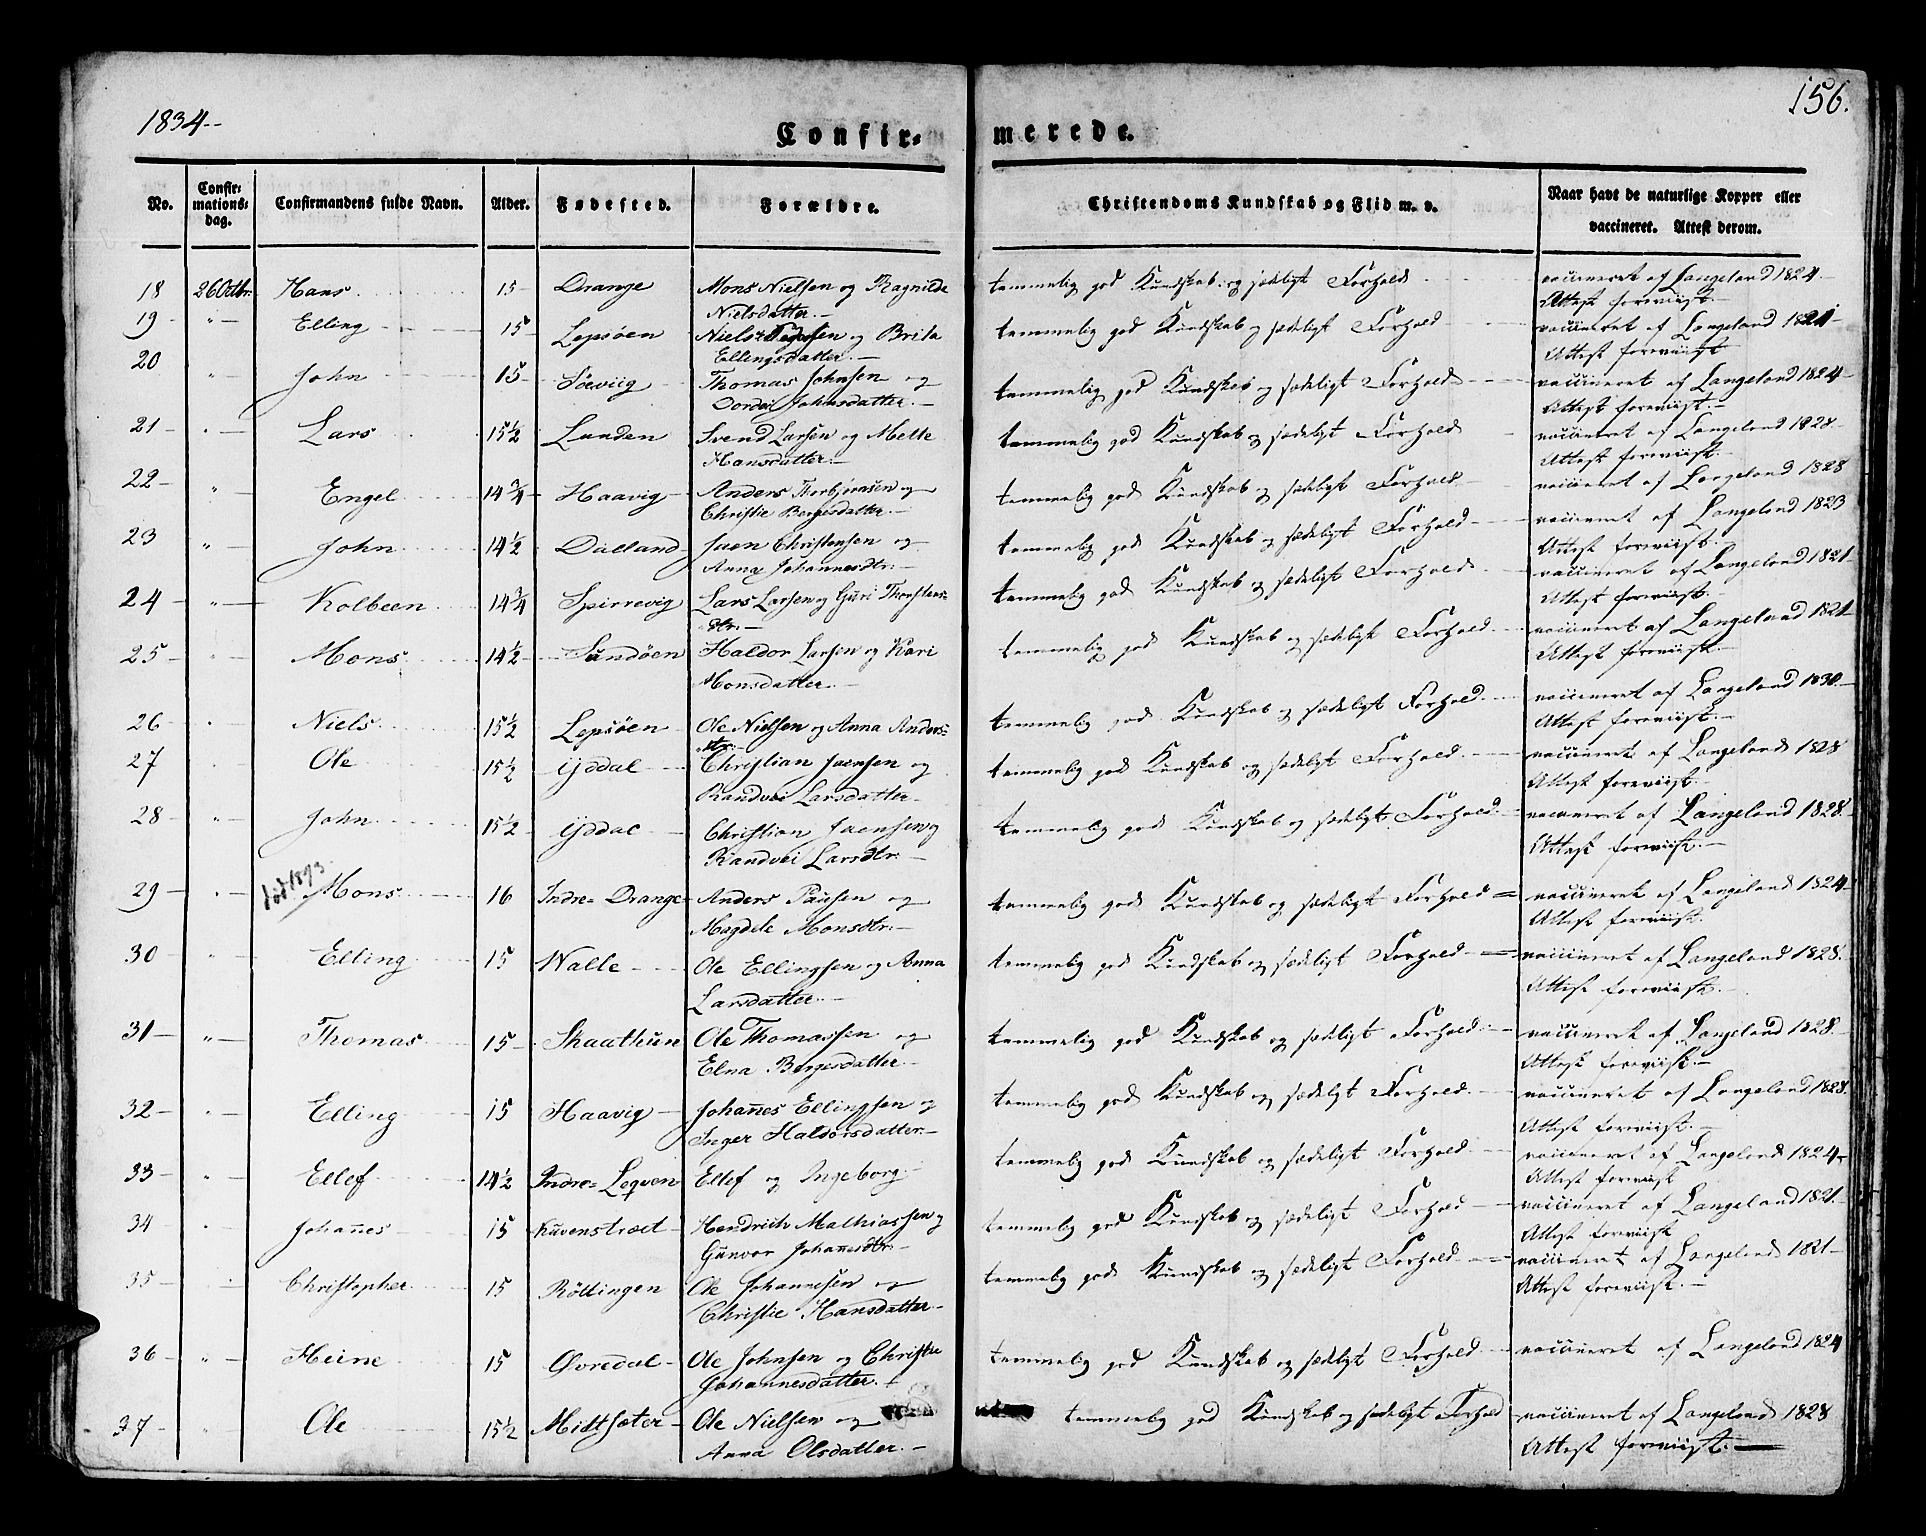 1834--
156.
Confir- merede.
No. | Confir-mations-dag. | Confirmandens fulde Navn. | Alder. | Fødested. | Forældre. | Christendoms Kundskab og Flid m. v. | Naar havt de naturlige Kopper eller vaccineret. Attest derom.
18 26 Octbr. Hans 15 Drange Mons Nielsen og Ragnilde temmelig god Kundskab og sædeligt Forhold vaccineret af Langeland 1824
Nielsdatter. Attest foreviist.
19 " Elling 15 Lepsøen Niels og Brita temmelig god Kundskab og sædeligt Forhold vaccineret af Langeland 1821
Ellingsdatter. Attest foreviist
20 " John 15 Søeviig Thomas Johnsen og temmelig god Kundskab og sædeligt Forhold vaccineret af Langeland 1824
Dordei Johnsdatter. Attest foreviist.
21 " Lars 15½ Lunden Svend Larsen og Mette temmelig god Kundskab og sædeligt Forhold vaccineret af Langeland 1828
Hansdatter. Attest foreviist.
22 " Engel 14¾ Haavig Anders Thorbjørnsen og temmelig god Kundskab og sædeligt Forhold vaccineret af Langeland 1828
Christie Børgesdatter.
23 " John 14½ Dalland Jaen Christensen og temmelig god Kundskab og sædeligt Forhold vaccineret af Langeland 1823
Anna Johannesdtr. Attest foreviist.
24 " Kolbeen 14¾ Spirrevig Lars Larsen og Guri Thorstens- temmelig god Kundskab og sædeligt Forhold vaccineret af Langeland 1821
dtr. Attest foreviist.
25 " Mons 14½ Sundøen Haldor Larsen og Kari temmelig god Kundskab og sædeligt Forhold vaccineret af Langeland 1821
Monsdatter. Attest foreviist.
26 " Niels 15½ Lepsøen Ole Nielsen og Anna Anders- temmelig god Kundskab og sædeligt Forhold vaccineret af Langeland 1830
dtr. Attest foreviist.
27 " Ole 15½ Yddal Christian Jaensen og temmelig god Kundskab og sædeligt Forhold vaccineret af Langeland 1828
Randvei Larsdatter Attest foreviist.
28 " John 15½ Yddal Christian Jaensen og temmelig god Kundskab og sædeligt Forhold vaccineret af Langeland 1828.
Randvei Larsdtr. Attest foreviist.
død 1893
29 " Mons 16 Indre-Drange Anders Paulsen og temmelig god Kundskab og sædeligt Forhold vaccineret af Langeland 1824
Magdele Monsdtr. Attest foreviist.
30 " Elling 15 Valle Ole Ellingsen og Anna temmelig god Kundskab og sædeligt Forhold vaccineret af Langeland 1828.
Larsdatter. Attest foreviist.
31 " Thomas 15 Skaathun Ole Thomassen og temmelig god Kundskab og sædeligt Forhold vaccineret af Langeland 1828.
Elna Børgesdatter. Attest foreviist.
32 " Elling 15 Haavig Johañes Ellingsen og temmelig god Kundskab og sædeligt Forhold vaccineret af Langeland 1828.
Inger Haldorsdatter. Attest foreviist.
33 " Ellef 14½ Indre-Leqven Ellef og Ingeborg temmelig god Kundskab og sædeligt Forhold vaccineret af Langeland 1824
Attest foreviist
34 " Johañes 15 Kuvenstræt Hendrich Mathiassen og temmelig god Kundskab og sædeligt Forhold vaccineret af Langeland 1821.
Gunvor Johañesdtr. Attest foreviist
35 " Christopher 15 Röttingen Ole Johannesen og temmelig god Kundskab og sædeligt Forhold vaccineret af Langeland 1821
Christie Hansdatter Attest foreviist.
36 " Heine 15 Øvredal Ole Johnsen og Christie temmelig god Kundskab og sædeligt Forhold vaccineret af Langeland 1824
Johannesdatter.
37 " Ole 15½ Midtsæter Ole Nielsen og temmelig god Kundskab og sædeligt Forhold vaccineret af Langeland 1828
Anna Olsdatter. Attest foreviist.